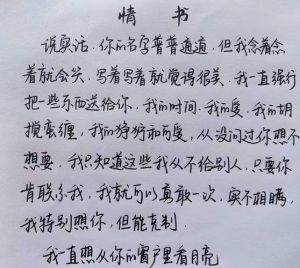 情书
说实话.你的名字普普通通.但我念着念
着就会笑.写着写着就觉得很美.我一直强行
把一些东西送给你.我的时间.我的爱.我的胡
搅蛮缠.我的狰狞和可爱.从没问过你想不
想要.我只知道这些我从不给别人.只要你
肯联系我.我就可以勇敢一次.实不相瞒.
我特别想你.但能克制.
我一直想从你的窗户里看月亮